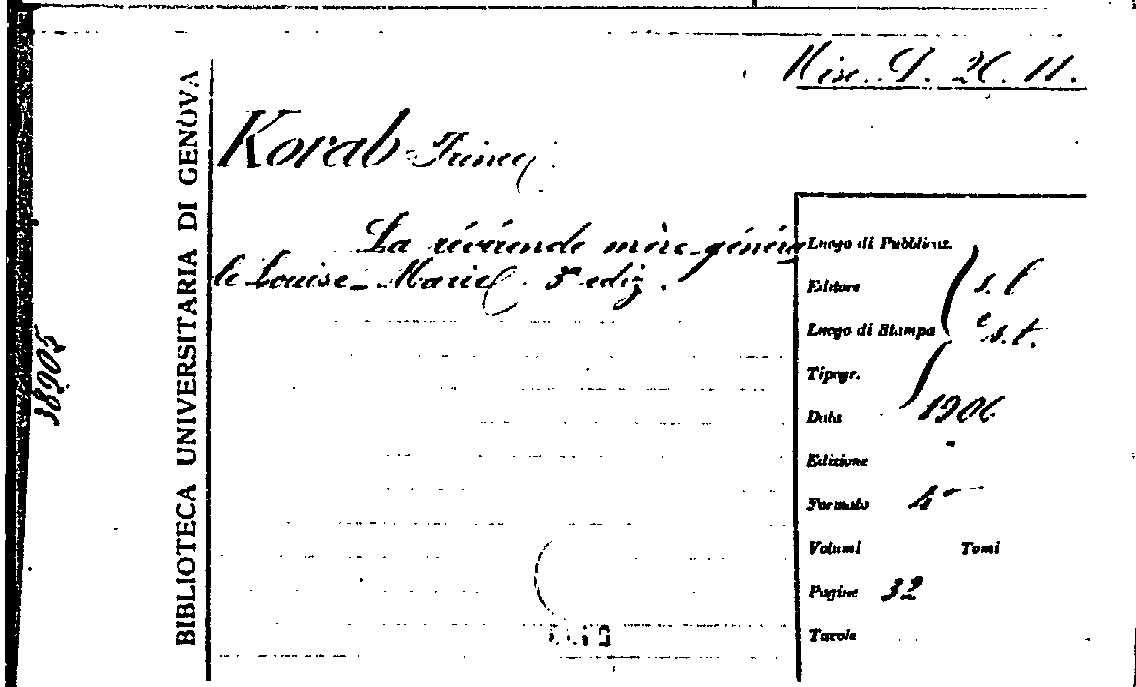 Misc. G. 26. 11.
BIBLIOTECA UNIVERSITARIA DI GENOVA
Korab
La révérende mère généra
le Louise-Marie. 3ª ediz.
Luogo di Pubblicaz.
Editore s. l
Luogo di Stampa e s. t.
Tipogr.
Data 1906
Edizione
Formato 4°
Volumi Tomi
Pagine 32
Tavole
38905